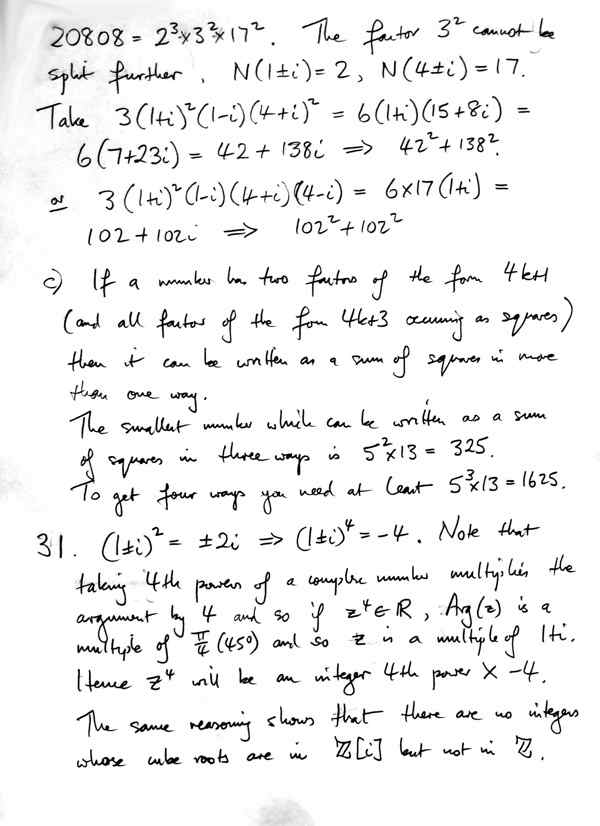 20808 = 2³×3²×17². The factor 3² cannot be
split further, N(1±i)=2, N(4±i)=17.
Take 3(1+i)²(1-i)(4+i)² = 6(1+i)(15+8i) =
6(7+23i) = 42 + 138i ⟹ 42²+138².
or 3(1+i)²(1-i)(4+i)(4-i) = 6×17(1+i) =
102 + 102i ⟹ 102²+102²
c) If a number has two factors of the form 4k+1
(and all factors of the form 4k+3 occurring as squares)
then it can be written as a sum of squares in more
than one way.
The smallest number which can be written as a sum
of squares in three ways is 5²×13 = 325.
To get four ways you need at least 5³×13 = 1625.
31. (1±i)² = ±2i ⟹ (1±i)⁴ = -4. Note that
taking 4th powers of a complex number multiplies the
argument by 4 and so if z⁴ ∈ ℝ, Arg(z) is a
multiple of π/4 (45°) and so z is a multiple of 1+i.
Hence z⁴ will be an integer 4th power × -4.
The same reasoning shows that there are no integers
whose cube roots are in ℤ[i] but not in ℤ.